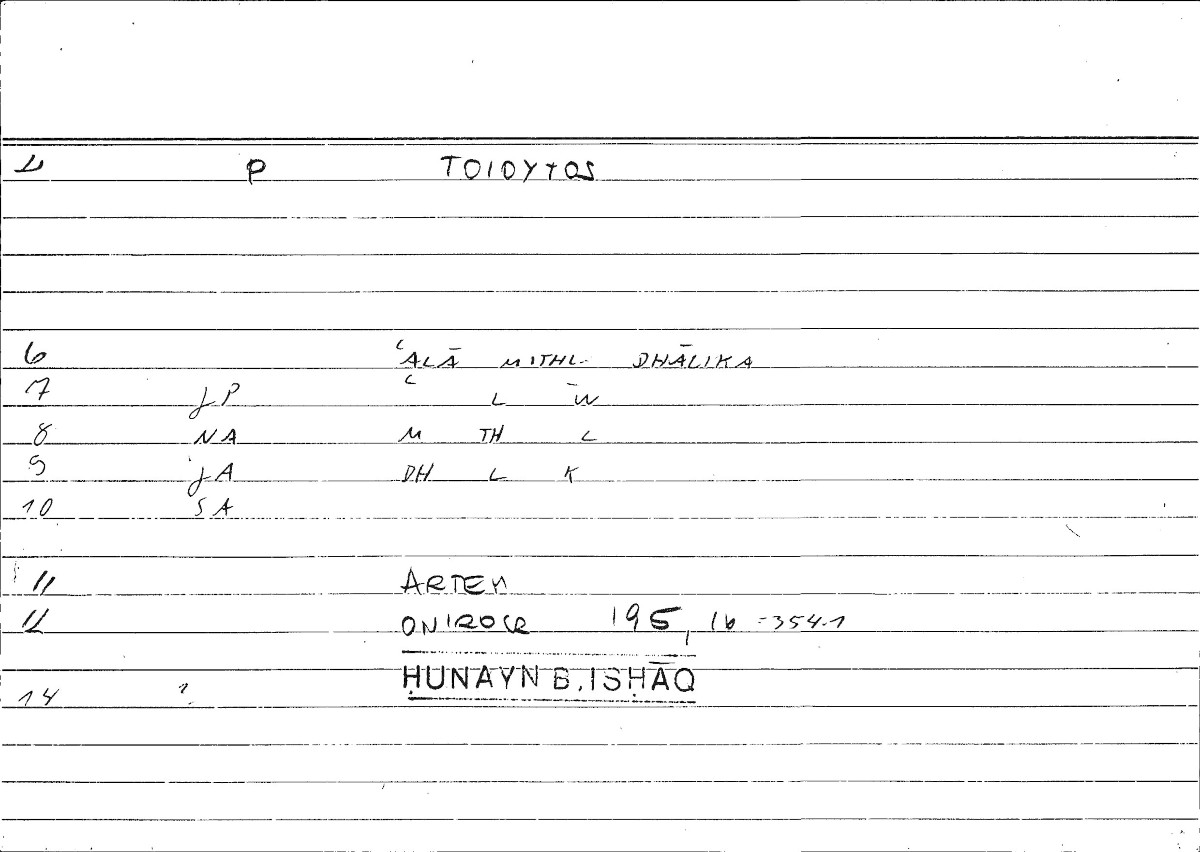 P TOIOYTOS
6 ʿALĀ MITHL DHĀLIKA
7 JP ʿ L W̄
8 NA M TH L
9 JA DH L K
10 SA
11 ARTEM
ONIROCR 195, 16 = 354.1
14 ḤUNAYN B. ISḤĀQ